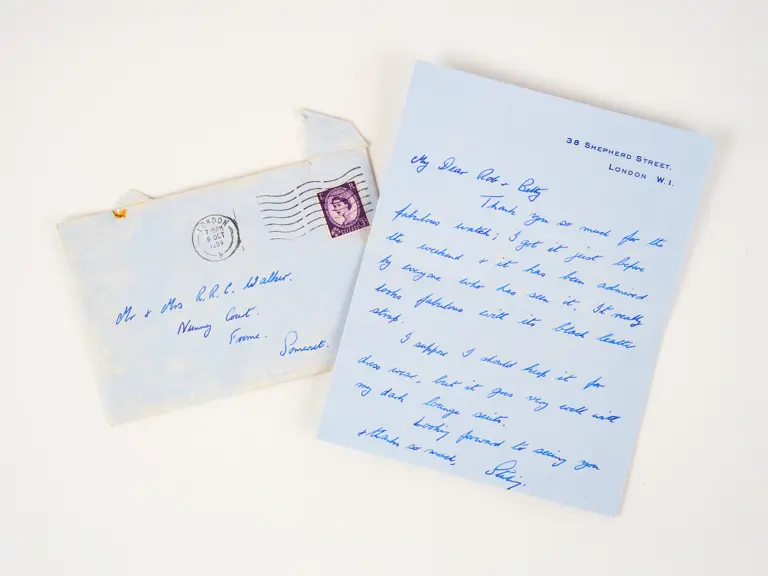 LONDON
PM
6 OCT
Mr & Mrs R.R.C. Walker.
Nunney Court.
Frome.
Somerset.
38 SHEPHERD STREET,
LONDON W.1.
My Dear Rob & Betty
Thank you so much for the
fabulous watch; I got it just before
the weekend & it has been admired
by everyone who has seen it. It really
looks fabulous with its black leather
strap.
I suppose I should keep it for
dress wear, but it goes very well with
my dark lounge suits.
Looking forward to seeing you
& thanks so much,